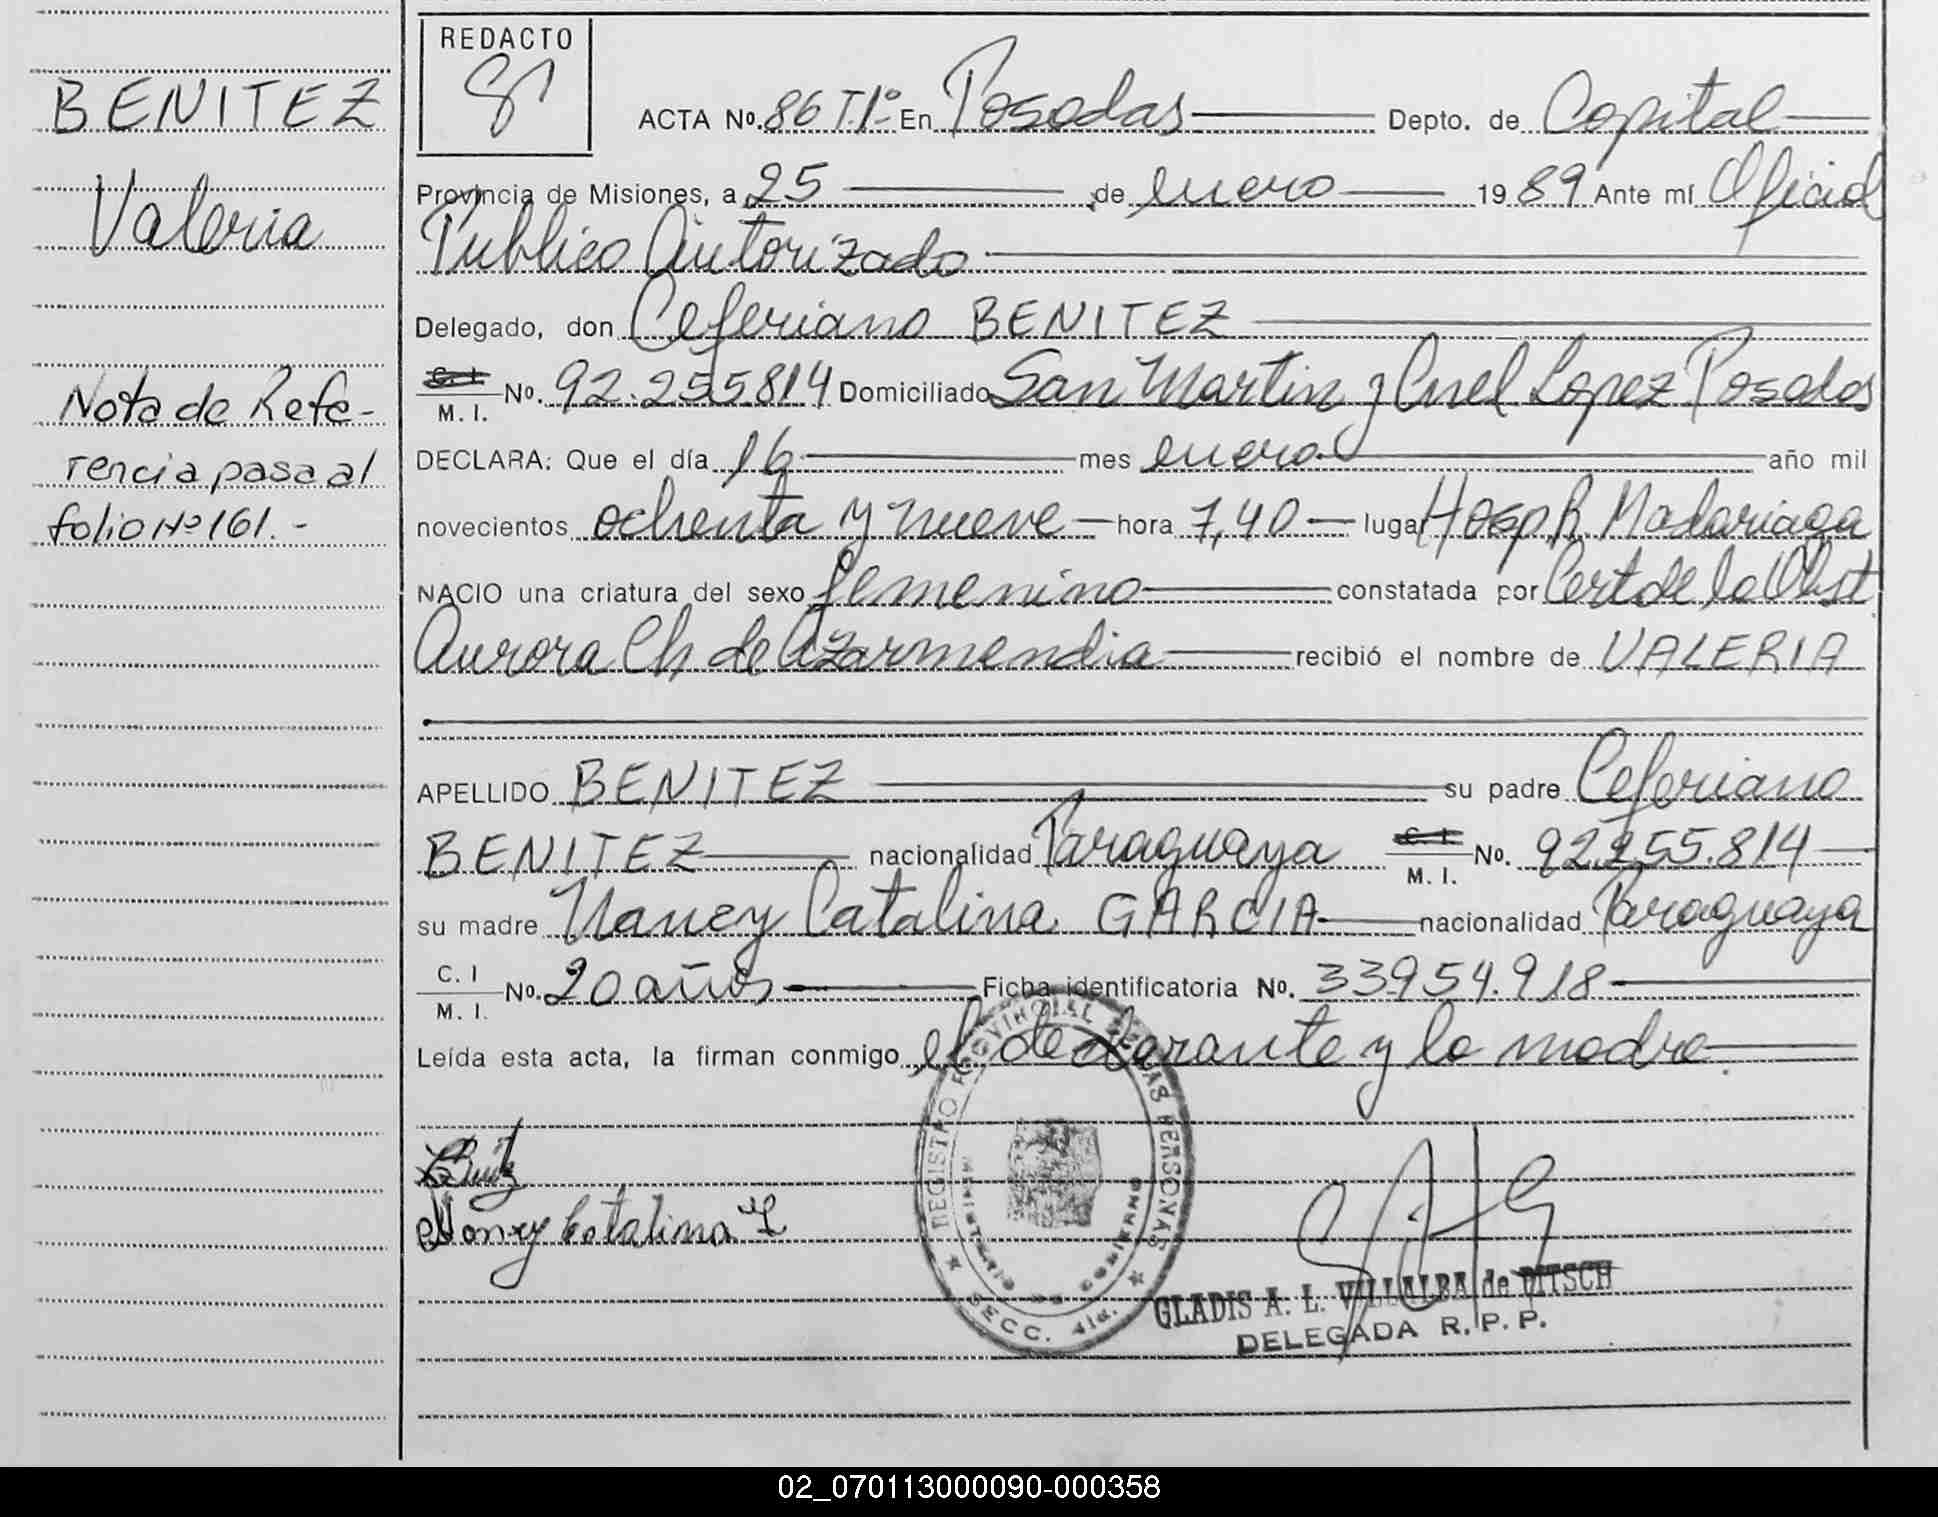 BENITEZ
Valeria
Nota de Refe-
rencia pasa al
folio Nº 161.-
REDACTO
ACTA Nº. 86 T.1º En Posadas Depto. de Capital
Provincia de Misiones, a 25 de enero 1989 Ante mí Oficial
Publico Autorizado
Delegado, don Ceferiano BENITEZ
C. I.
M. I. No. 92.255.814 Domiciliado San Martin y Cnel Lopez Posadas
DECLARA: Que el día 16 mes enero año mil
novecientos ochenta y nueve hora 7,40 lugar Hosp. R. Madariaga
NACIO una criatura del sexo femenino constatada por Cert de la Obst
Aurora Ch de Azarmendia recibió el nombre de VALERIA
APELLIDO BENITEZ su padre Ceferiano
BENITEZ nacionalidad Paraguaya C. I. M. I. No. 92.255.814
su madre Nancy Catalina GARCIA nacionalidad Paraguaya
C. I M. I. No. 20 años Ficha identificatoria No. 33.954.918
Leída esta acta, la firman conmigo el declarante y la madre
Nancy Catalina
REGISTRO PROVINCIAL DE LAS PERSONAS
MINISTERIO DE GOBIERNO
SECC. 4ta.
GLADIS A. L. VILLALBA de PITSCH
DELEGADA R. P. P.
02_070113000090-000358